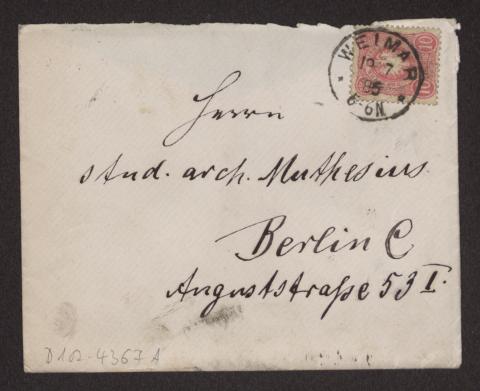 10
WEIMAR
7
85
Herrn
stud. arch. Muthesius
Berlin C
Auguststraße 53 I.
D102-4367 A